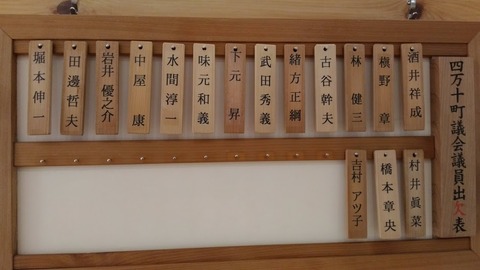 四万十町議会議員出欠表
酒井祥成
槇野 章
林 健三
古谷幹夫
緒方正綱
武田秀義
下元 昇
味元和義
水間淳一
中屋 康
岩井優之介
田邊哲夫
堀本伸一
村井眞菜
橋本章央
吉村アツ子